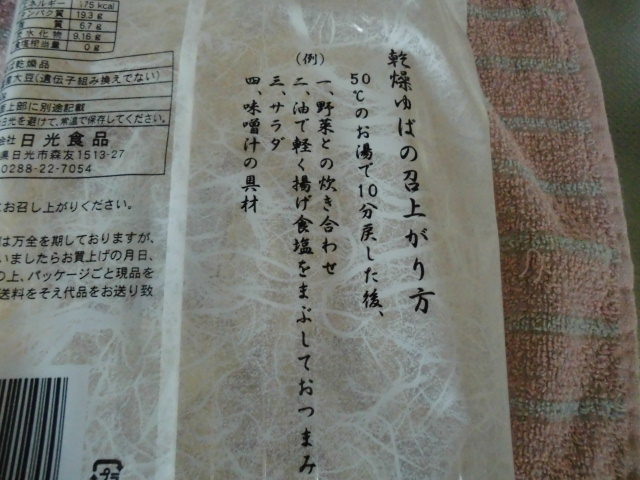 乾燥ゆばの召上がり方
50℃のお湯で10分戻した後、
(例)
一、野菜との炊き合わせ
二、油で軽く揚げ食塩をまぶしておつまみ
三、サラダ
四、味噌汁の具材
ネルギー 175 kcal
ンパク質 19.3 g
質 6.7 g
水化物 9.16 g
塩相当量 0 g
乾燥品
大豆(遺伝子組み換えでない)
上部に別途記載
光を避けて、常温で保存してください。
会社 日光食品
県日光市森友1513-27
0288-22-7054
お召し上がりください。
は万全を期しておりますが、
いましたらお買上げの月日、
の上、パッケージごと現品を
送料をそえ代品をお送り致
プラ